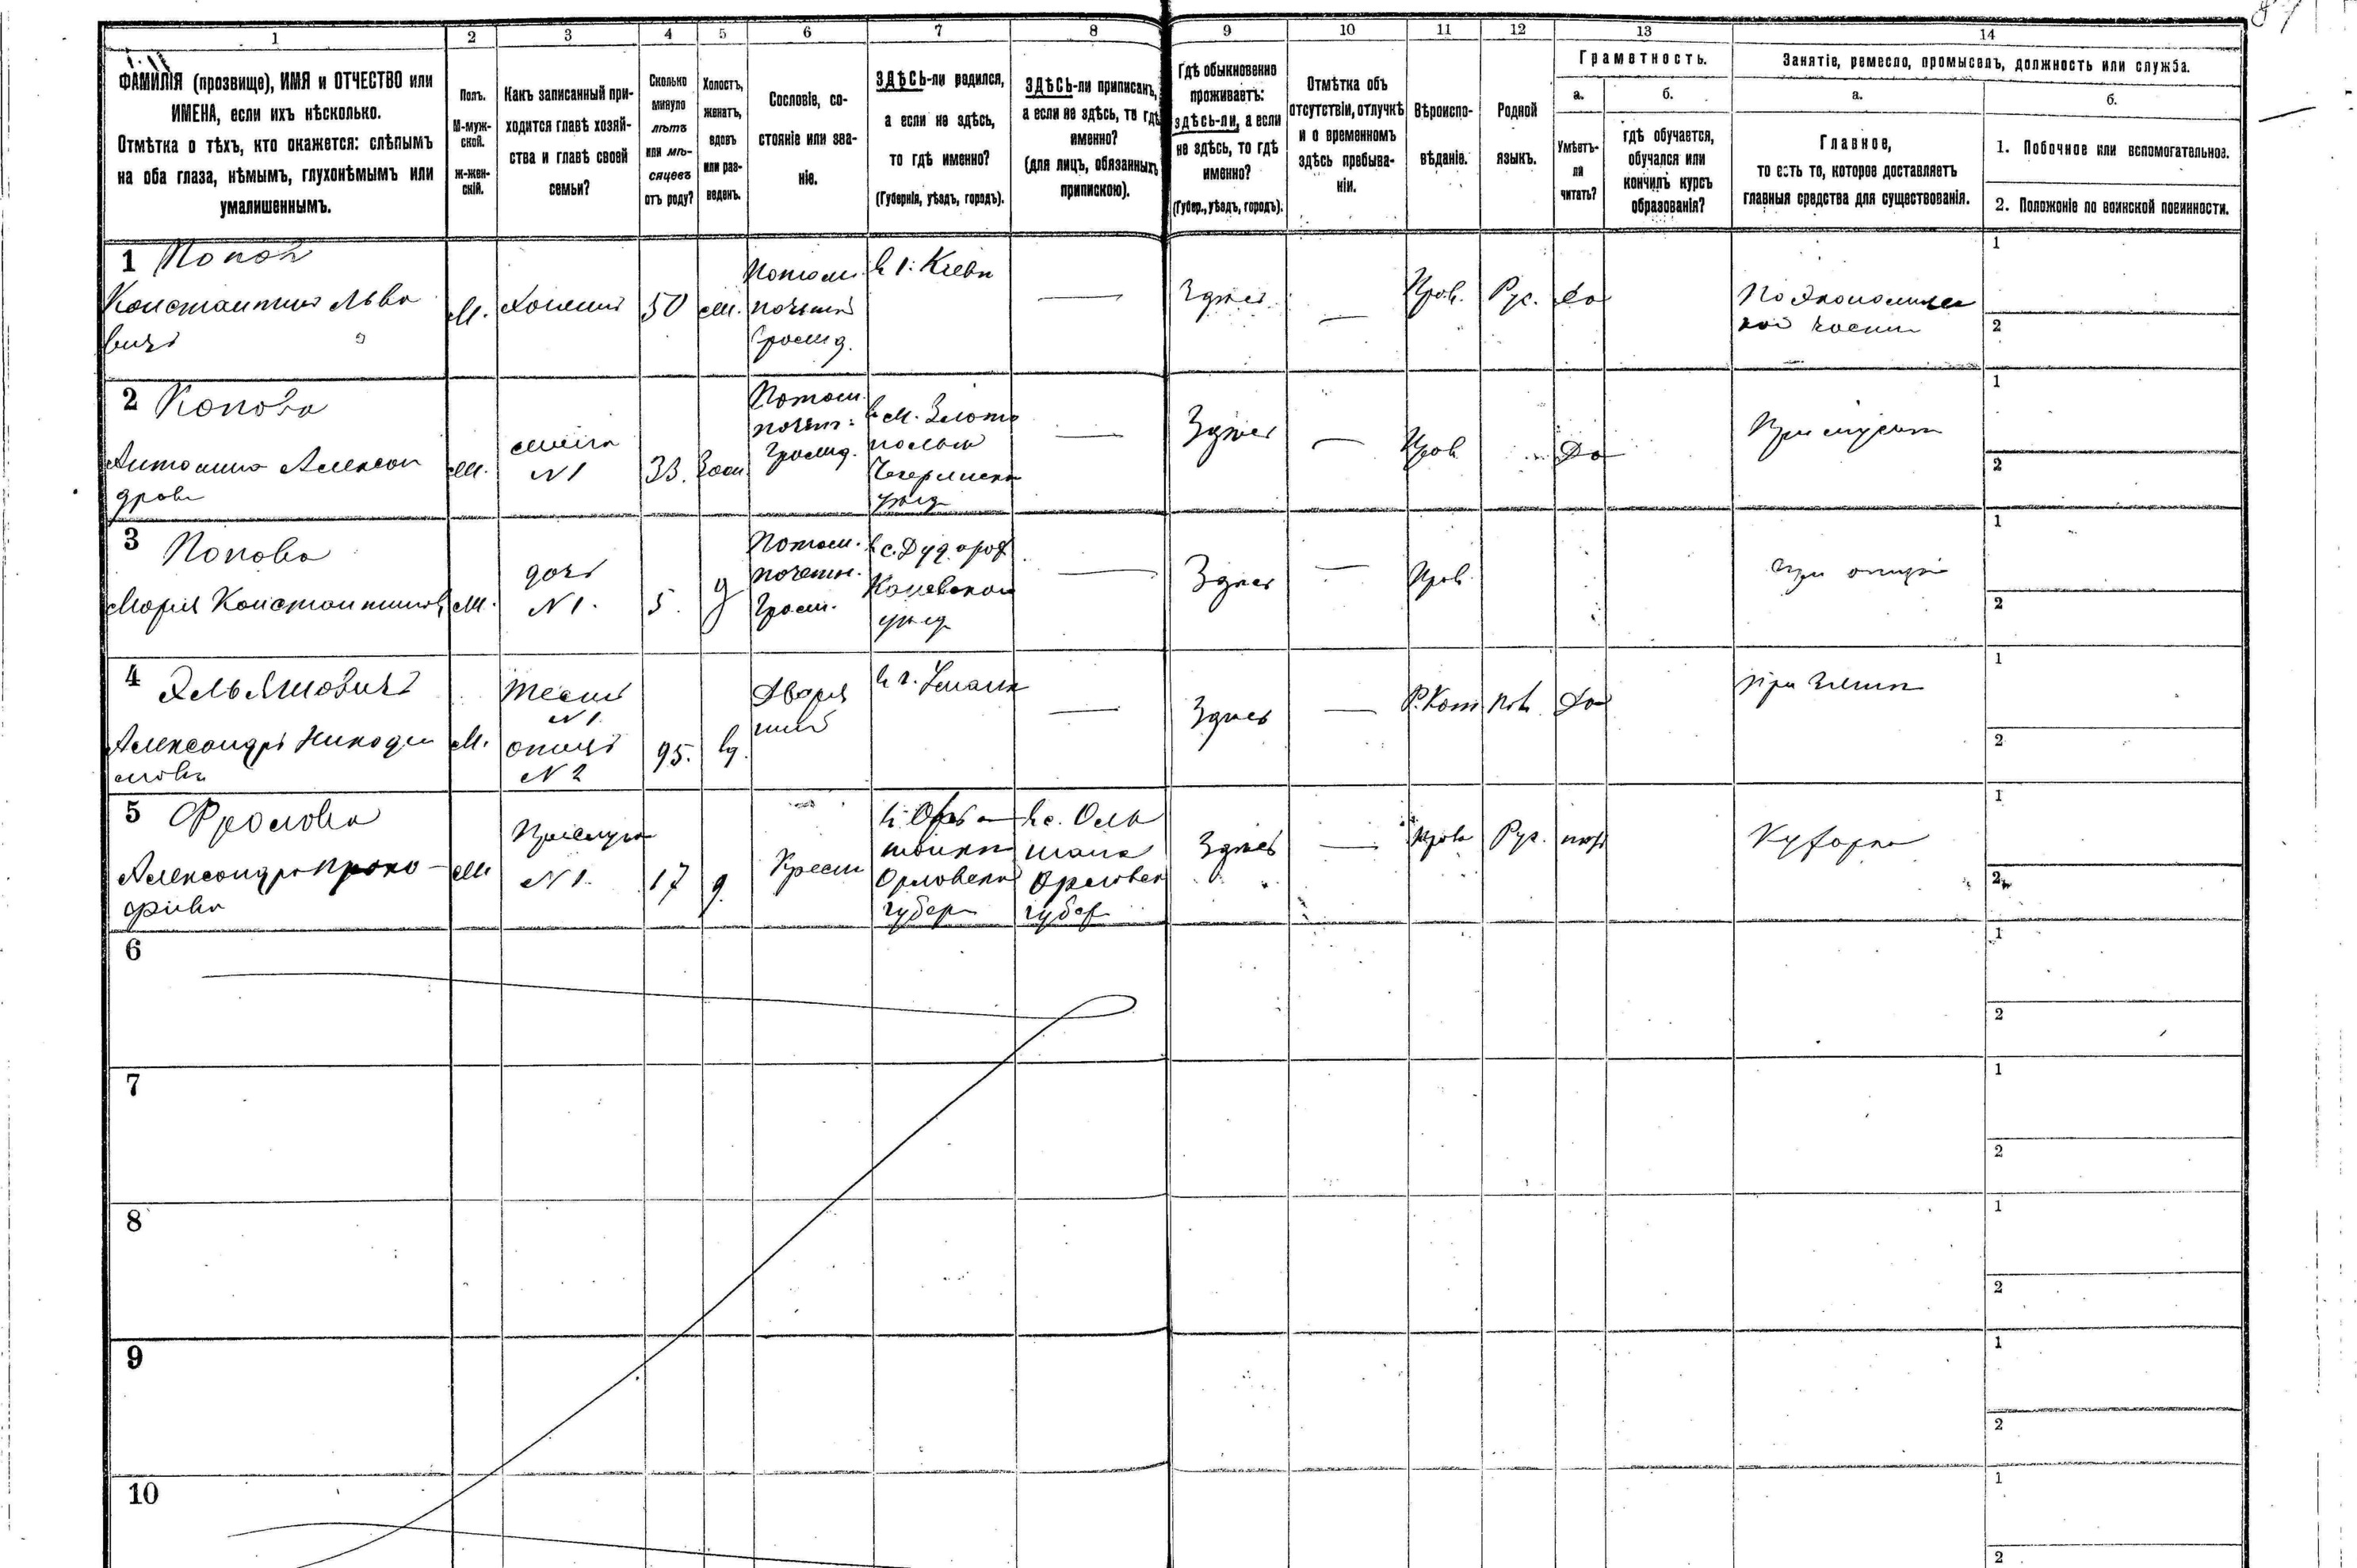 87
1 2 3 4 5 6 7 8 9 10 11 12 13 14
ФАМИЛІЯ (прозвище), ИМЯ и ОТЧЕСТВО или
ИМЕНА, если ихъ нѣсколько.
Отмѣтка о тѣхъ, кто окажется: слѣпымъ
на оба глаза, нѣмымъ, глухонѣмымъ или
умалишеннымъ.
Полъ.
М-муж-
ской.
ж-жен-
скій.
Какъ записанный при-
ходится главѣ хозяй-
ства и главѣ своей
семьи?
Сколько
минуло
лѣтъ
или мѣ-
сяцевъ
отъ роду?
Холостъ,
женатъ,
вдовъ
или раз-
веденъ.
Сословіе, со-
стояніе или зва-
ніе.
ЗДѢСЬ-ли родился,
а если не здѣсь,
то гдѣ именно?
(Губернія, уѣздъ, городъ).
ЗДѢСЬ-ли приписанъ,
а если не здѣсь, то гдѣ
именно?
(для лицъ, обязанныхъ
припискою).
Гдѣ обыкновенно
проживаетъ:
здѣсь-ли, а если
не здѣсь, то гдѣ
именно?
(Губер., уѣздъ, городъ).
Отмѣтка объ
отсутствіи, отлучкѣ
и о временномъ
здѣсь пребыва-
ніи.
Вѣроиспо-
вѣданіе.
Родной
языкъ.
Грамотность.
а.
Умѣетъ-
ли
читать?
б.
гдѣ обучается,
обучался или
кончилъ курсъ
образованія?
Занятіе, ремесло, промыселъ, должность или служба.
а.
Главное,
то есть то, которое доставляетъ
главныя средства для существованія.
б.
1. Побочное или вспомогательное.
2. Положеніе по воинской повинности.
1 Попов
Константинъ Льво
вичъ
М.
50
Потом.
почетн
гражд.
в г. Кіевѣ
Здѣсь
Прав.
Рус.
да
По Экономичес
кой части
1
2
2 Попова
Антонина Алексан
дров
N 1
33.
Потом.
почет.
гражд.
в м. Злато
поль
Чегиринск
уѣзд
Здѣсь
Прав
Да
При мужѣ
1
2
3 Попова
Марія Константинов
дочь
N 1.
5.
д
Потом.
почетн.
граж.
в с.
Каневском
уѣзд
Здѣсь
Прав
при отцѣ
1
2
4
Александръ Никоди
мов
М.
тесть
N 1
отецъ
N 2
95.
вд.
Дворя
нинъ
в г. Умани
Здѣсь
Р. Кат
Пол
Да
При зятѣ
1
2
5 Фролова
Александра Проко
фіева
Прислуга
N 1.
17
д.
Крест
Орловской
губер
в с.
Орловск
губер
Здѣсь
Прав
Рус.
нѣтъ
Кухарка
1
2
6
1
2
7
1
2
8
1
2
9
1
2
10
1
2